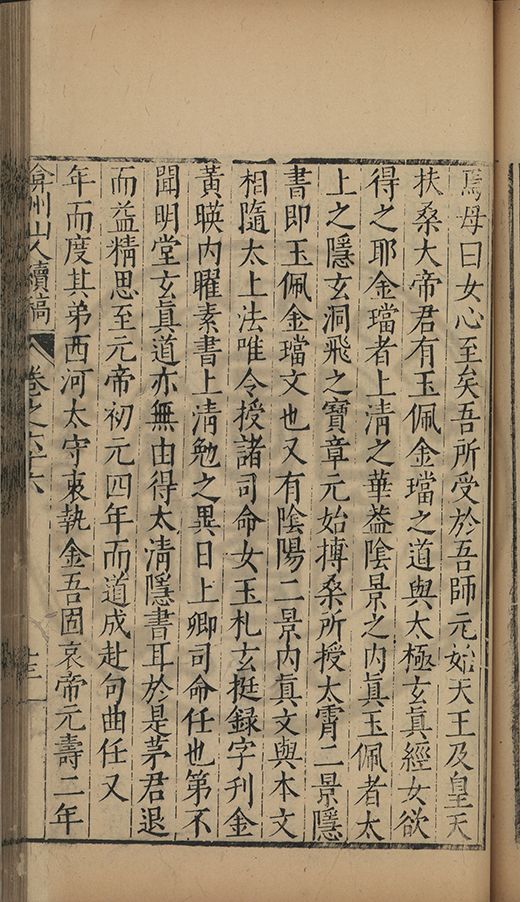 焉母曰女心至矣吾所受於吾師元始天王及皇天
扶桑大帝君有玉佩金璫之道與太極玄眞經女欲
得之耶金璫者上清之華葢陰景之内眞玉佩者太
上之隱玄洞飛之寶章元始摶桑所授太霄二景隱
書即玉佩金璫文也又有陰陽二景内眞文與本文
相隨太上法唯令授諸司命女玉札玄挺録字刊金
黃暎内曜素書上清勉之異日上卿司命任也第不
聞明堂玄眞道亦無由得太清隱書耳於是茅君退
而益精思至元帝初元四年而道成赴句曲任又
年而度其弟西河太守衷執金吾固哀帝元壽二年
弇州山人續稿 卷之六十六